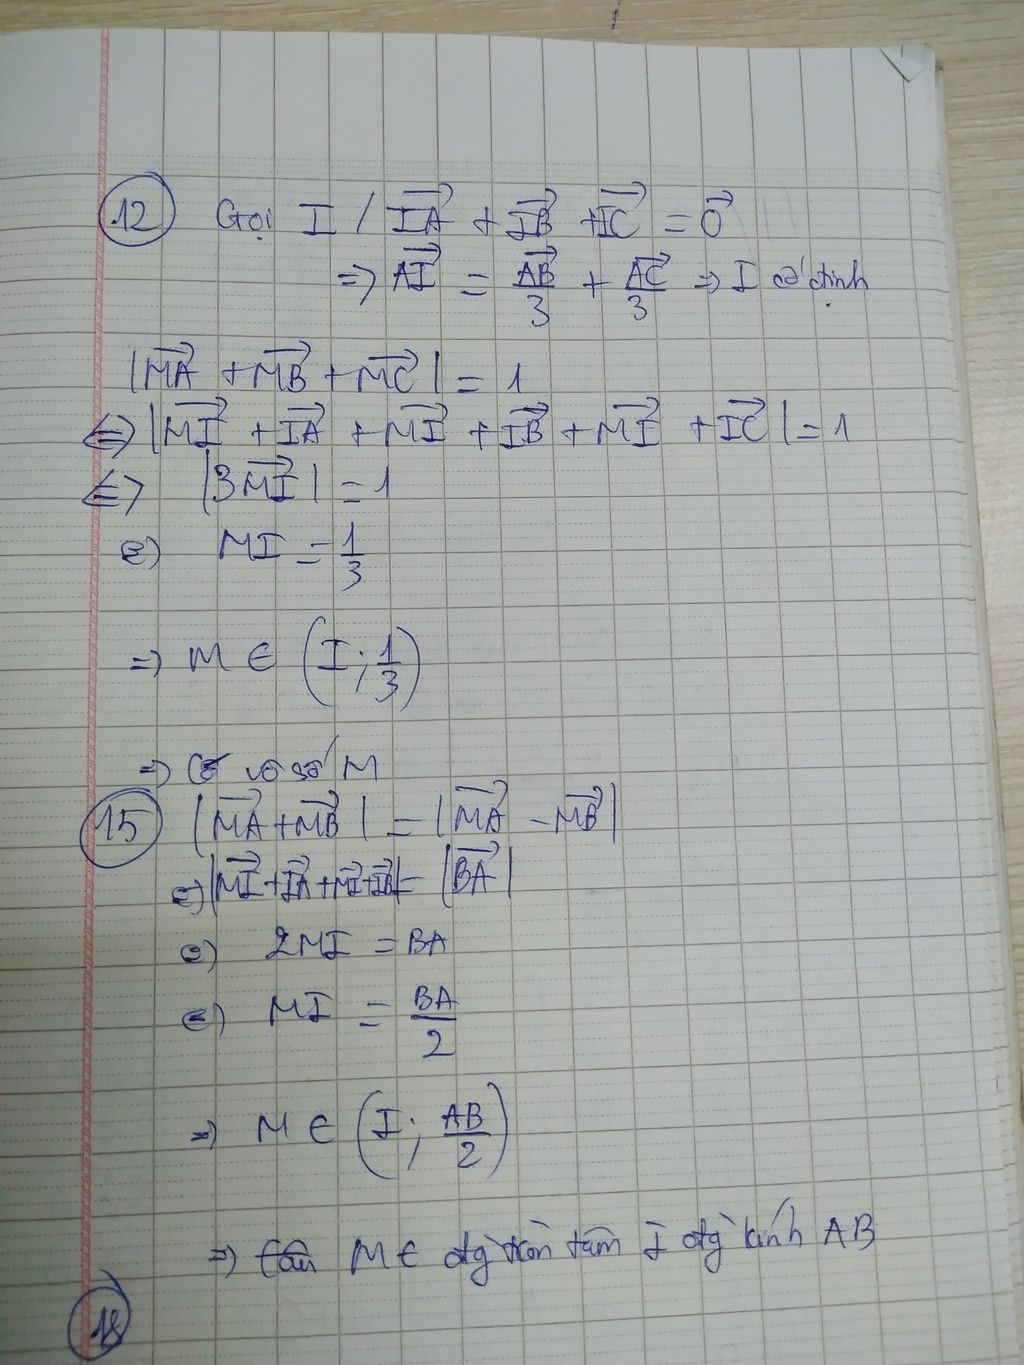 12 Gọi I / \overrightarrow{IA} + \overrightarrow{IB} + \overrightarrow{IC} = \vec{0}
=> \overrightarrow{AI} = \frac{\overrightarrow{AB}}{3} + \frac{\overrightarrow{AC}}{3} => I cố định
|\overrightarrow{MA} + \overrightarrow{MB} + \overrightarrow{MC}| = 1
<=> |\overrightarrow{MI} + \overrightarrow{IA} + \overrightarrow{MI} + \overrightarrow{IB} + \overrightarrow{MI} + \overrightarrow{IC}| = 1
<=> |3\overrightarrow{MI}| = 1
<=> MI = \frac{1}{3}
=> M ∈ (I; \frac{1}{3})
=> Có vô số M
15 |\overrightarrow{MA} + \overrightarrow{MB}| = |\overrightarrow{MA} - \overrightarrow{MB}|
<=> |\overrightarrow{MI} + \overrightarrow{IA} + \overrightarrow{MI} + \overrightarrow{IB}| = |\overrightarrow{BA}|
<=> 2MI = BA
<=> MI = \frac{BA}{2}
=> M ∈ (I; \frac{AB}{2})
=> M ∈ đg` tròn tâm I đg` kính AB
18